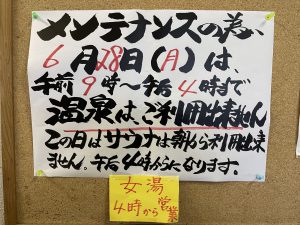 メンテナンスの為、
6月28日(月)は、
午前9時～午后4時まで
温泉は、ご利用出来ません
この日はサウナは朝から利用出来
ません。午后4時からになります。
女湯
4時から営業